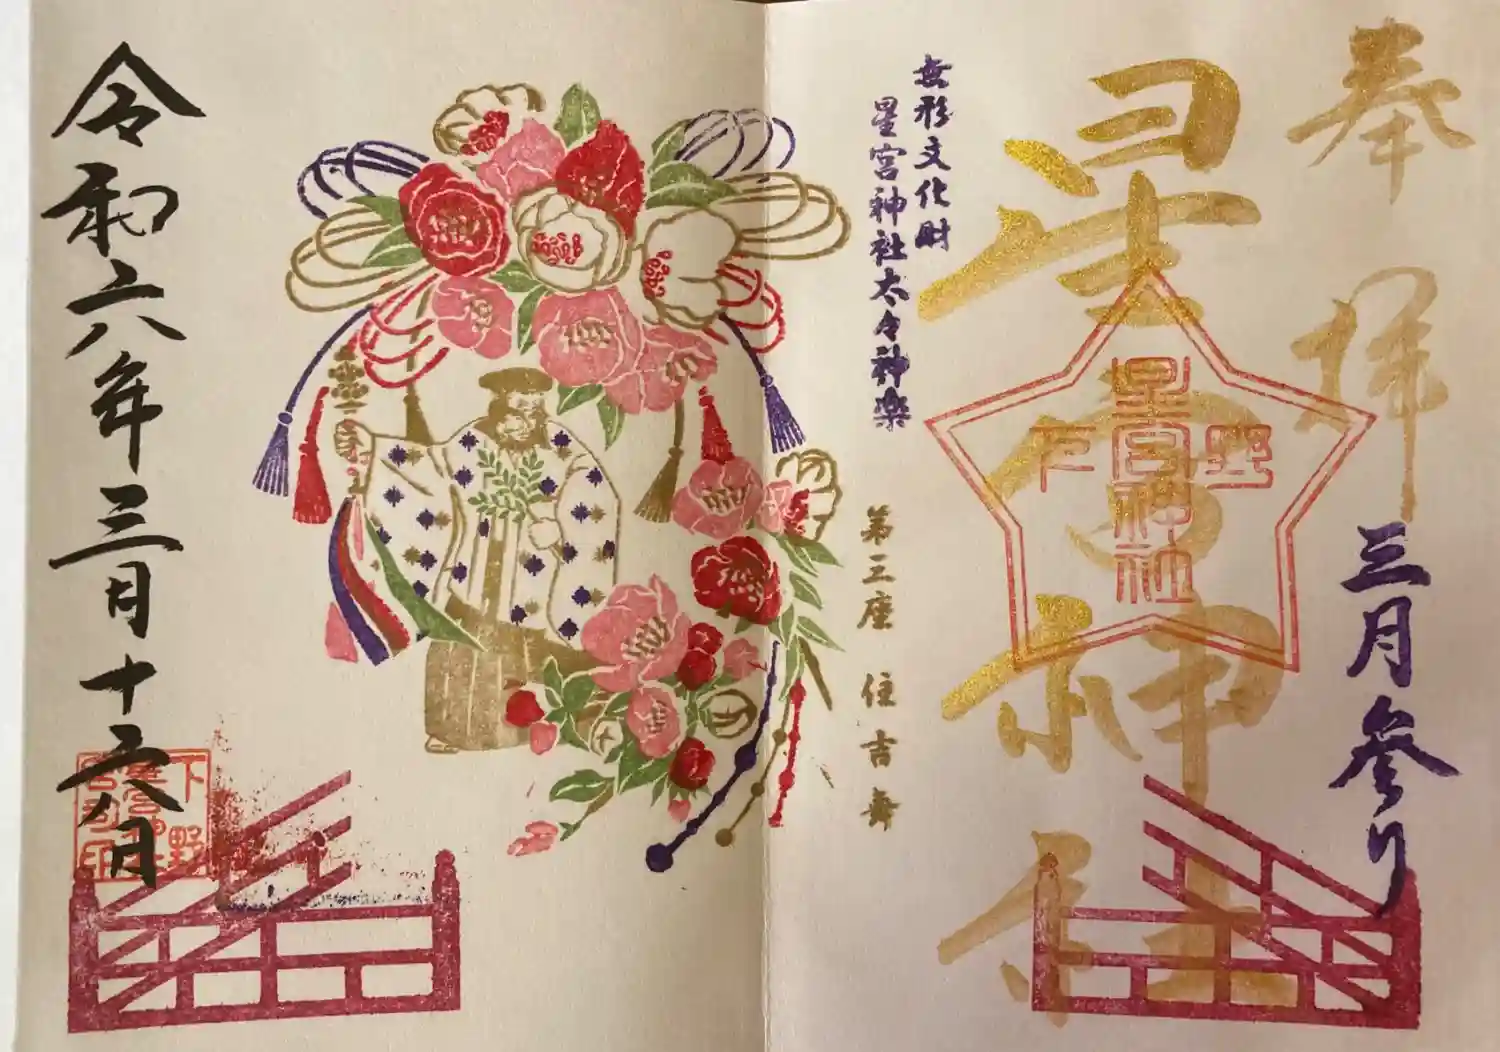 奉拝
三月参り
星宮神社
下野
星宮神社
無形文化財
星宮神社太々神楽
第三座 住吉舞
令和六年三月十六日
下野
星宮神社
宮司印